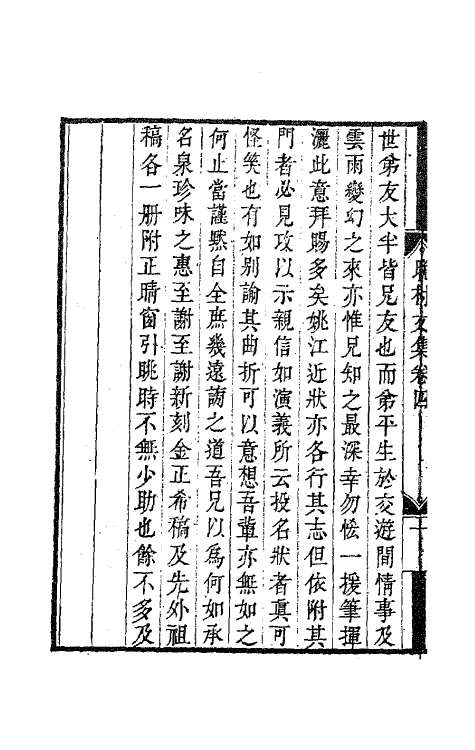 世弟友大半皆兄友也而弟平生於交遊間情事及
雲雨變幻之來亦惟兄知之最深幸勿恡一援筆揮
灑此意拜賜多矣姚江近狀亦各行其志但依附其
門者必見攻以示親信如演義所云投名狀者真可
怪笑也有如别諭其曲折可以意想吾輩亦無如之
何止當謹黙自全庶幾遠謗之道吾兄以為何如承
名泉珍味之惠至謝至謝新刻金正希稿及先外祖
稿各一册附正晴窗引眺時不無少助也餘不多及
村文集卷四